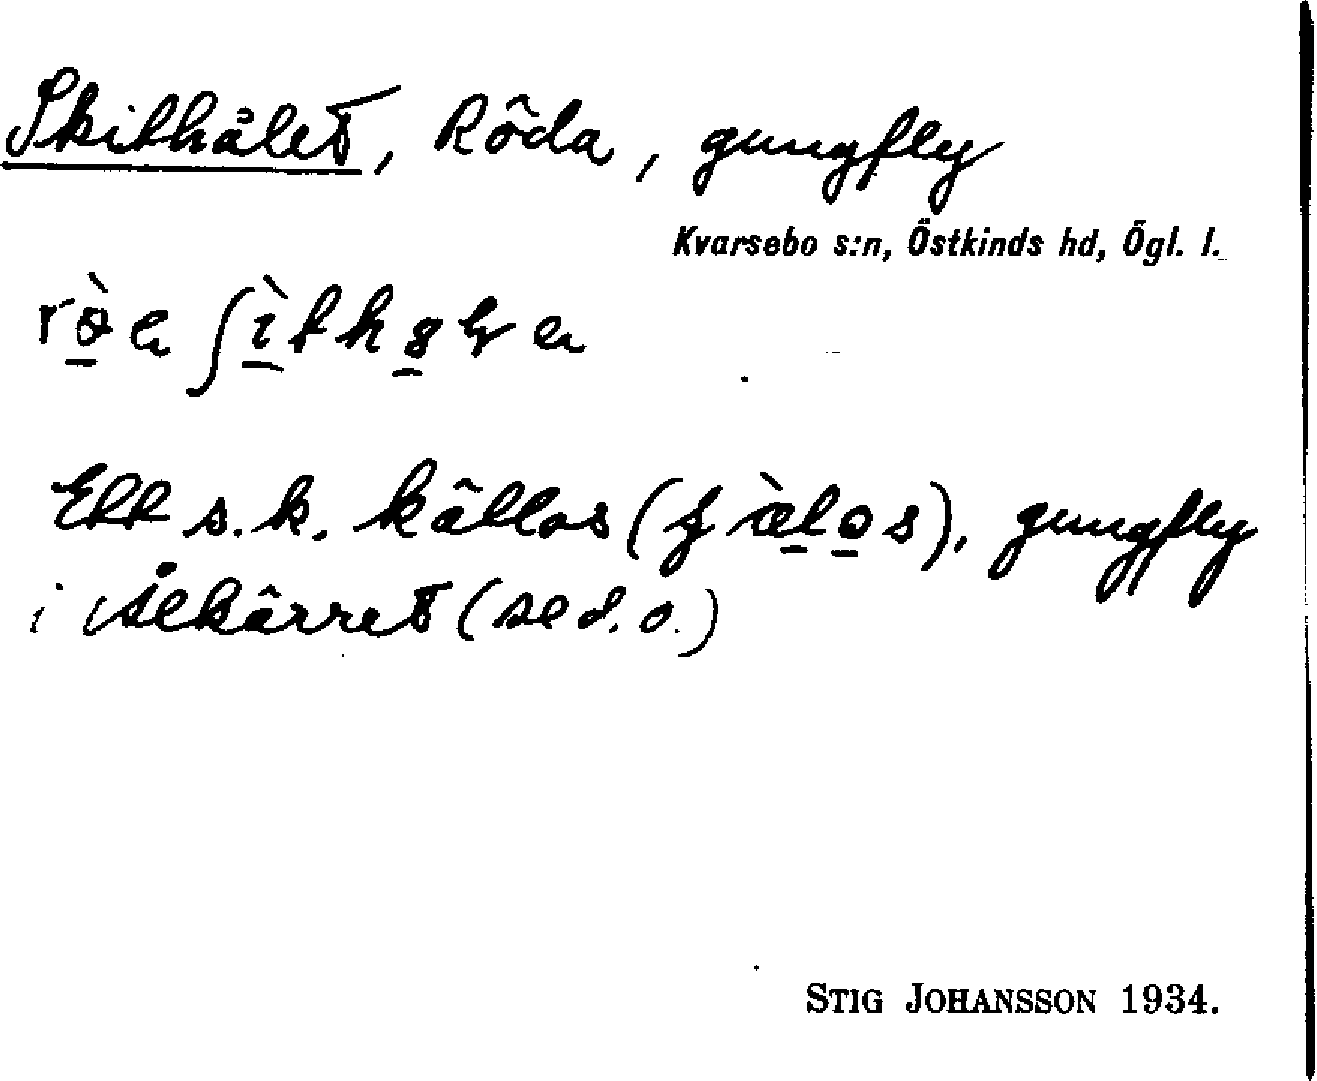 Skithålet, Röda, gungfly
Kvarsebo s:n, Östkinds hd, Ögl. l.
Ett s.k. källos (
), gungfly
i Åekärret (se d. o.)
STIG JOHANSSON 1934.